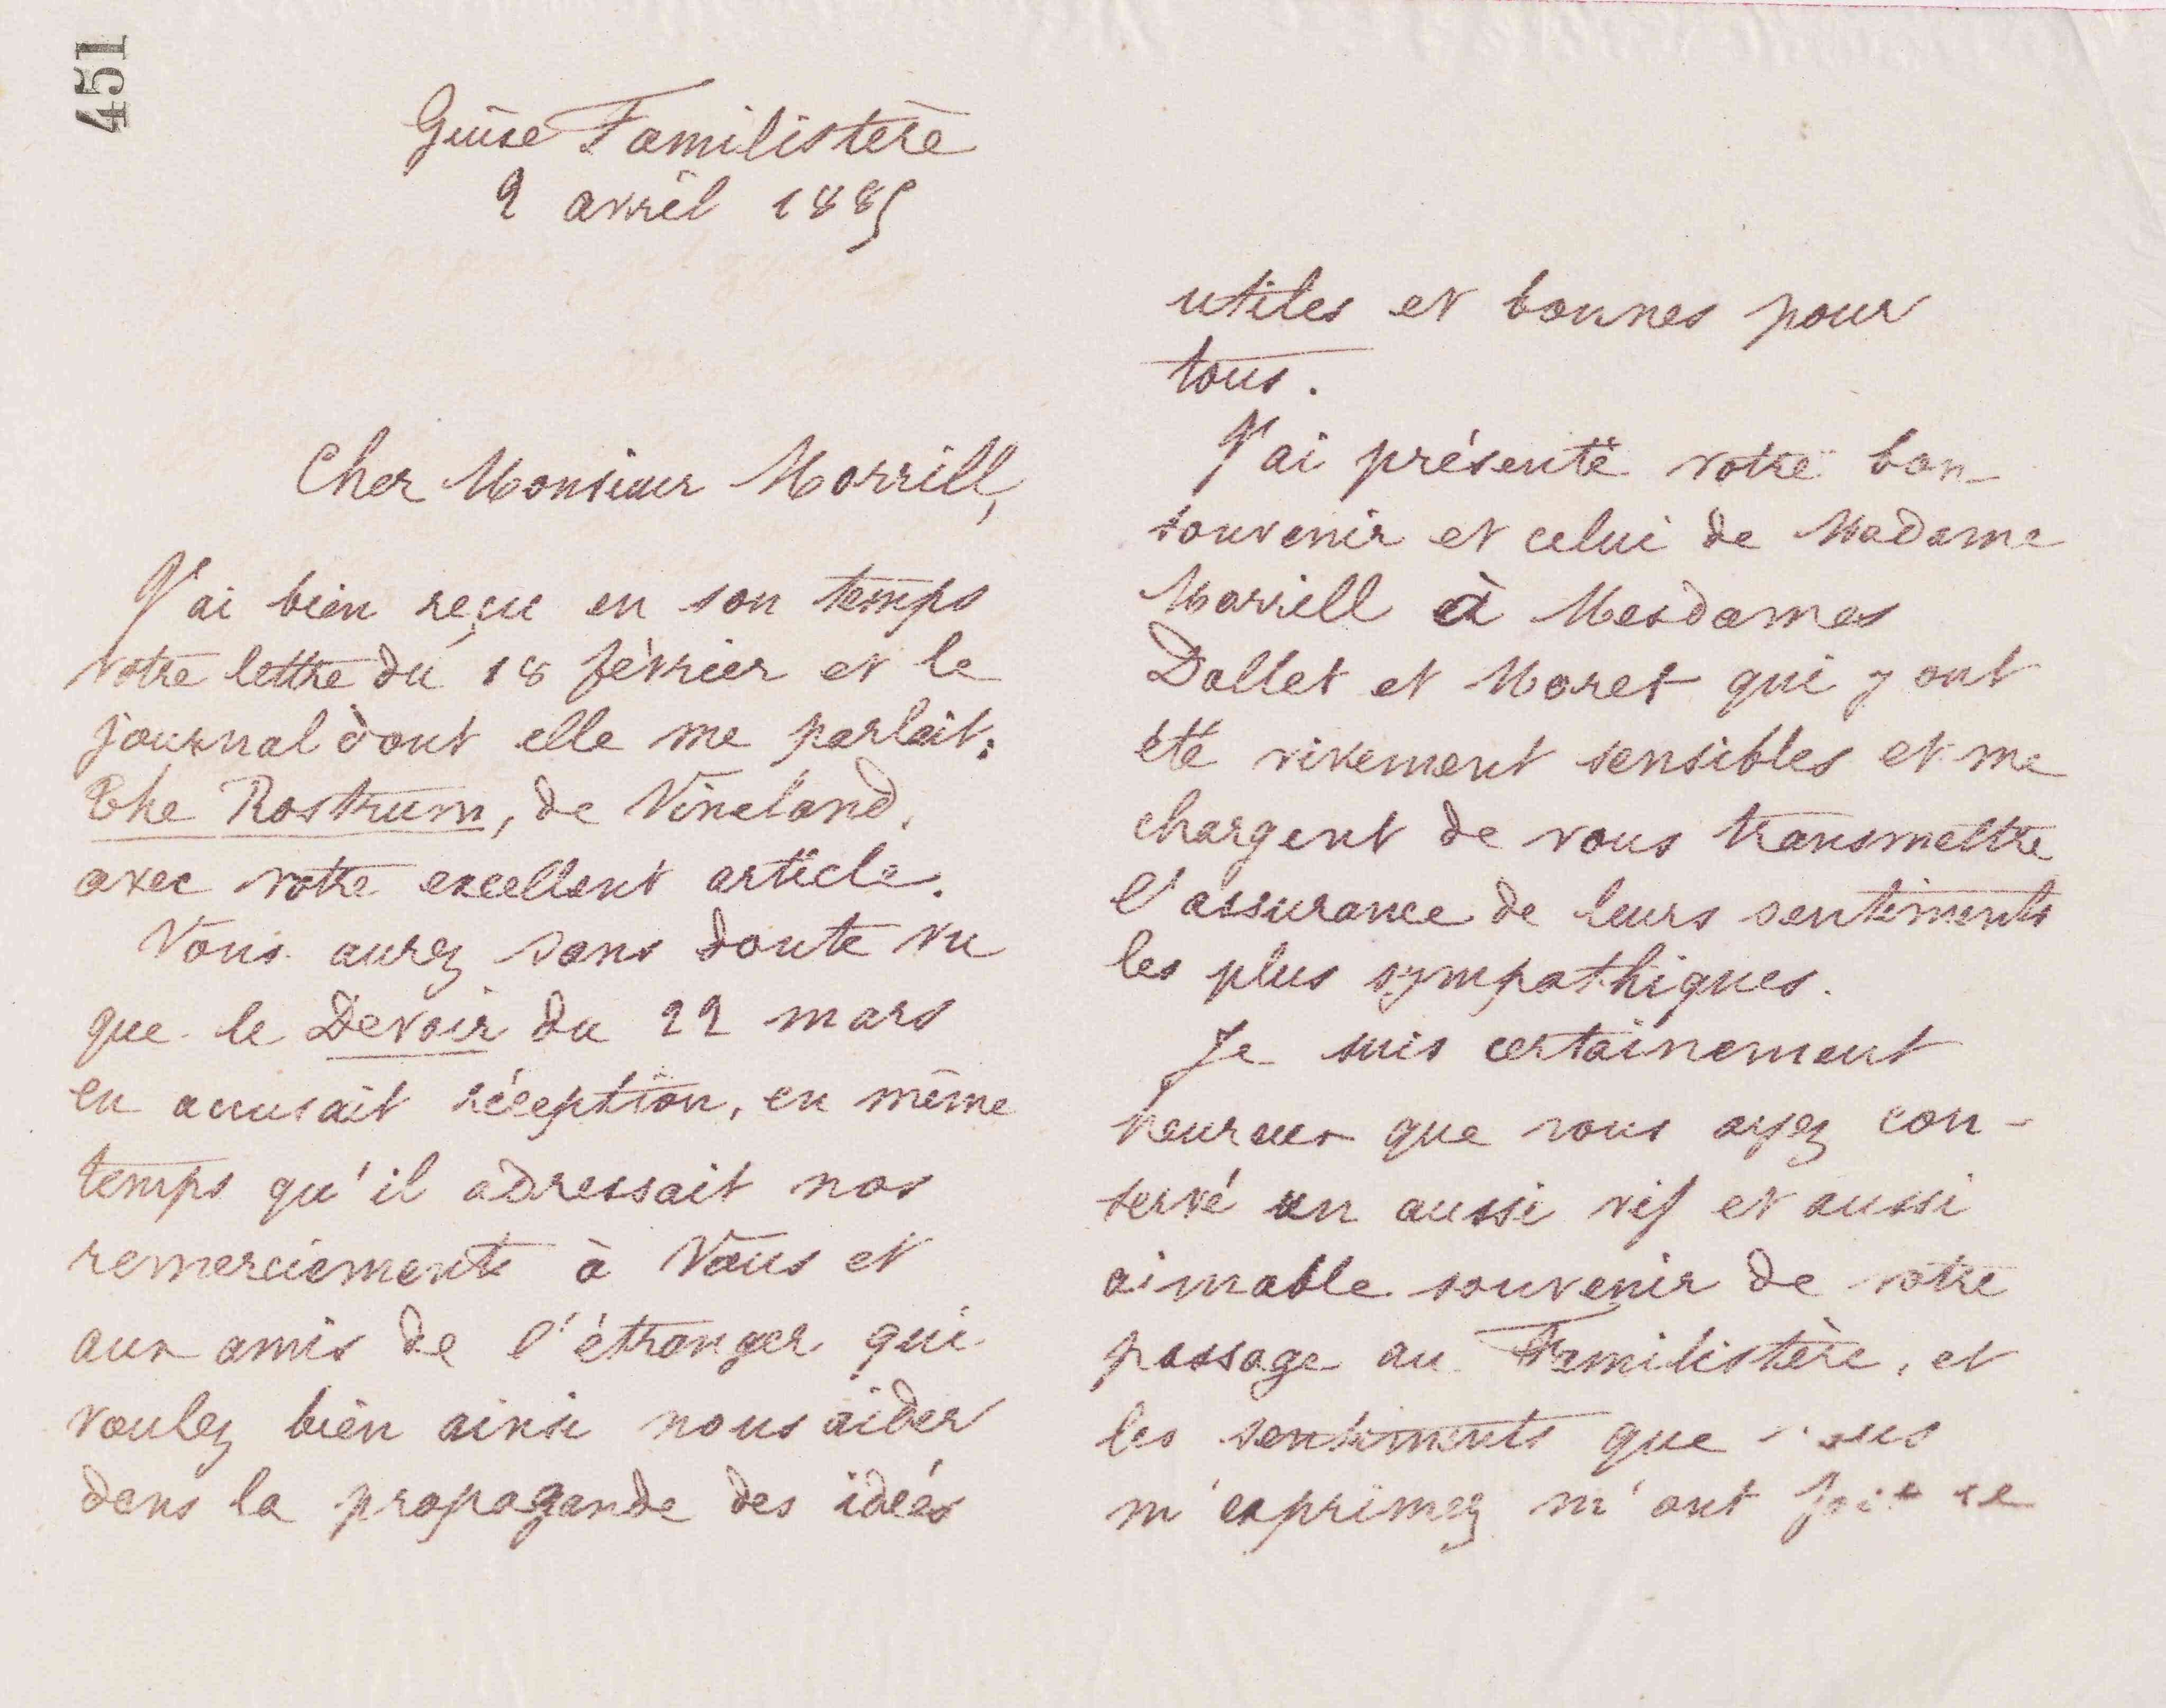 451
Guise Familistère
2 avril 1885
Cher Monsieur Morrill,
J'ai bien reçu en son temps
votre lettre du 18 février et le
journal dont elle me parlait:
The Rostrum, de Vineland,
avec votre excellent article.
Vous aurez sans doute vu
que le Devoir du 22 mars
en accusait réception, en même
temps qu'il adressait nos
remerciements à Vous et
aux amis de l'étranger qui
voulez bien ainsi nous aider
dans la propagande des idées
utiles et bonnes pour
tous.
J'ai présenté votre bon
souvenir et celui de Madame
Morrill à Mesdames
Dallet et Moret qui y ont
été vivement sensibles et me
chargent de vous transmettre
l'assurance de leurs sentiments
les plus sympathiques.
Je suis certainement
heureux que vous ayez con-
servé un aussi vif et aussi
aimable souvenir de votre
passage au Familistère, et
les sentiments que vous
m'exprimez m'ont fait re